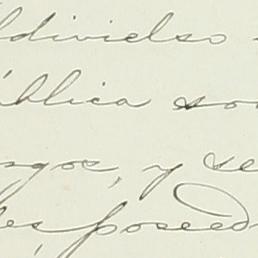 ldivielso
ública so
sgos, y se
les, poseed